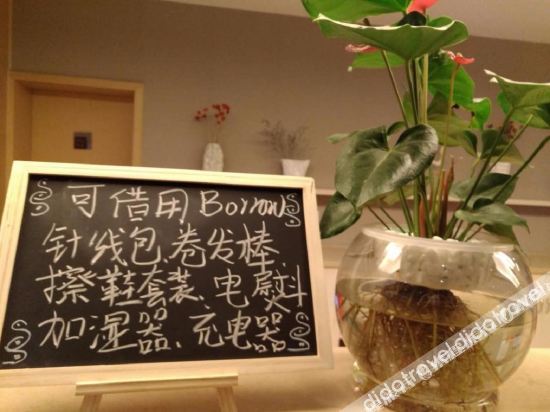 可借用 Borrow
针线包、卷发棒、
擦鞋套装、电熨斗
加湿器、充电器
didatravel didatravel didatravel